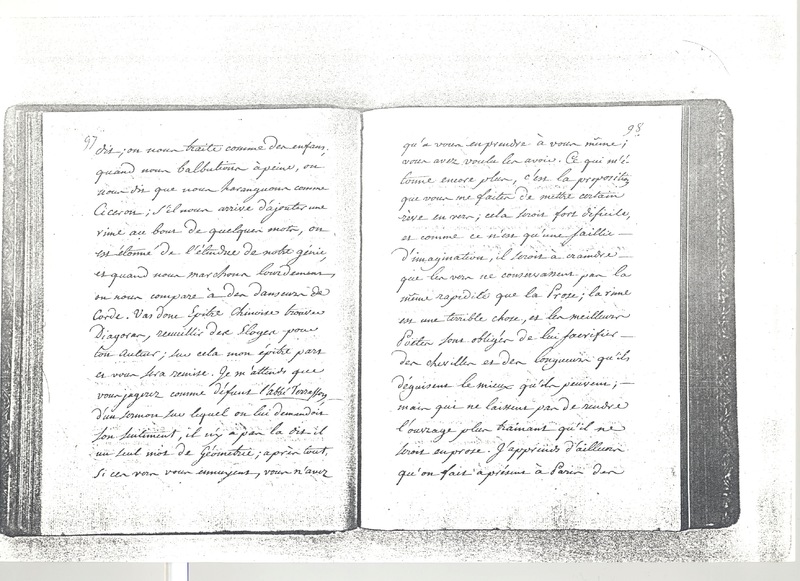 97
dit; on nous traite comme des enfans,
quand nous balbutions à peine, on
nous dit que nous haranguons comme
Ciceron; s'il nous arrive d'ajouter une
rime au bout de quelques mots, on
est étonné de l'étendue de notre génie
et quand nous marchons lourdement,
on nous compare à des danseurs de
Corde. Vas donc Epitre Chinoise trouver
Diagoras, recuëillir des Eloges pour
ton Auteur; sur cela mon épitre part
et vous sera remise. Je m'attends que
vous jugerez comme défunt l'abbé Terrasson
d'un sermon sur lequel on lui demandoit
son sentiment, il n'y a pas la dit-il
un seul mot de Géometrie; après tout,
Si ces vers vous ennuyent, vous n'avez
98
qu'à vous en prendre à vous même;
vous avez voulu les avoir. Ce qui m'é
tonne encore plus, c'est la proposition
que vous me faites de mettre certain
rêve en vers; cela seroit fort dificile,
et comme ce n'est qu'une saillie
d'imagination, il seroit à craindre
que les vers ne conservassent pas la
même rapidité que la Prose; la rime
est une terrible chose, et les meilleurs
Poëtes sont obligés de lui sacrifier
des chevilles et des longueurs qu'ils
déguisent le mieux qu'ils peuvent;
mais qui ne laissent pas de rendre
l'ouvrage plus trainant qu'il ne
seroit en prose. J'apprends d'ailleurs
qu'on fait à présent à Paris des